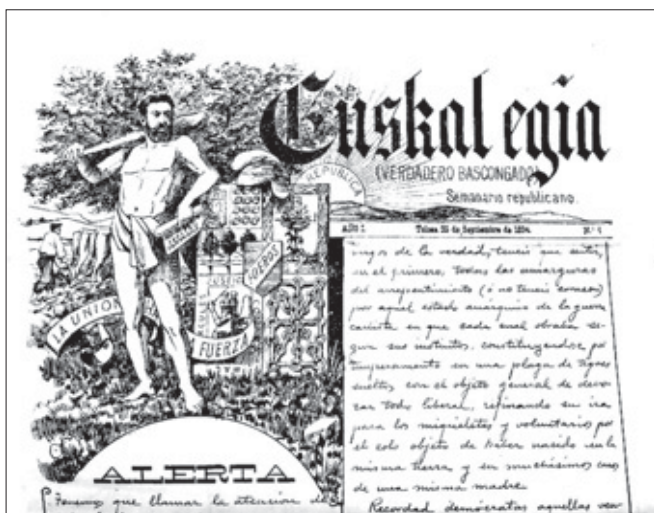 Euskal egia
(VERDADERO BASCONGADO)
Semanario republicano.
REPUBLICA
AÑO I. Tolosa 25 de Septiembre de 1894. N.º 1
FUEROS
LA UNION
FUERZA
ALERTA
Tenemos que llamar la atención de
migos de la verdad, teneis que sentir,
en el primero, todas las amarguras
del arrepentimiento (si no teneis corazon)
por aquel estado anárquico de la guerra
carlista en que cada cual obraba se-
gun sus instintos, constituyendose por
temperamento en una plaga de tigres
sueltos con el objeto general de devo-
rar todo liberal, refinando su ira
para los miqueletes y voluntarios por
el solo objeto de haber nacido en la
misma tierra y en muchisimos casos
de una misma madre.
Recordad demócratas aquellas